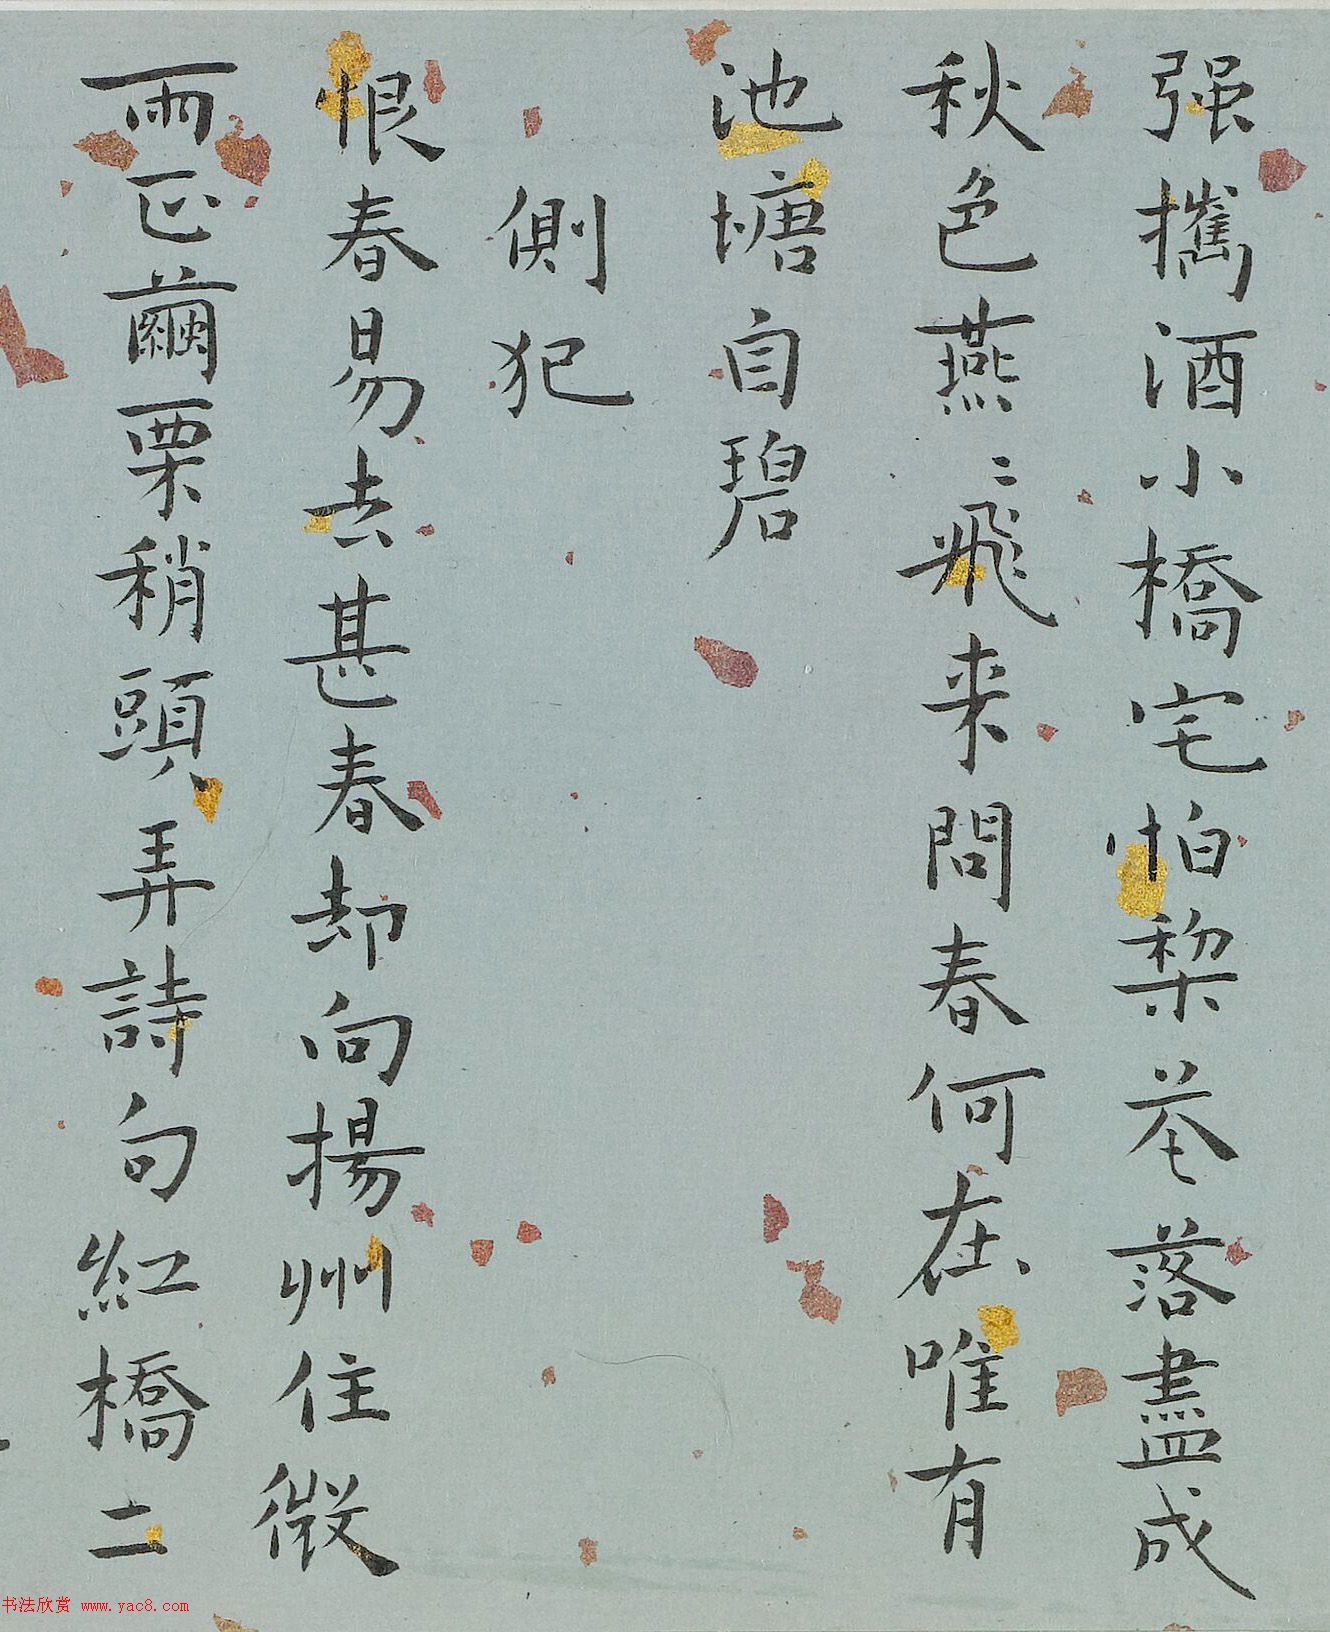 强攜酒小橋宅怕棃花落盡成
秋色燕〻飛来問春何在唯有
池塘自碧
側犯
恨春易去甚春却向揚州住微
雨正繭栗稍頭弄詩句紅橋二
书法欣赏 www.yac8.com